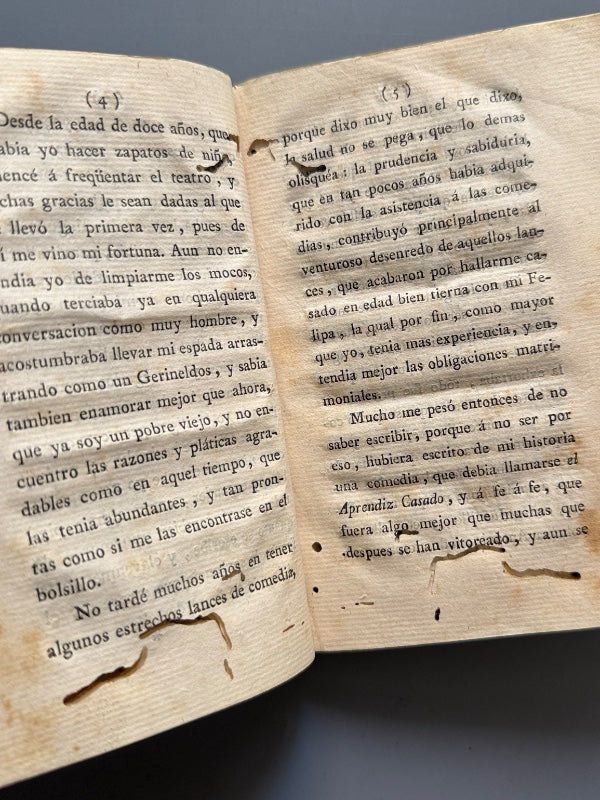 (4)
Desde la edad de doce años, que
abia yo hacer zapatos de niña,
mencé á freqüentar el teatro, y
chas gracias le sean dadas al que
llevó la primera vez, pues de
í me vino mi fortuna. Aun no en-
ndia yo de limpiarme los mocos,
uando terciaba ya en qualquiera
conversacion como muy hombre, y
acostumbraba llevar mi espada arras-
trando como un Gerineldos, y sabia
tambien enamorar mejor que ahora,
que ya soy un pobre viejo, y no en-
cuentro las razones y pláticas agra-
dables como en aquel tiempo, que
las tenia abundantes, y tan pron-
tas como si me las encontrase en el
bolsillo.
No tardé muchos años en tener
algunos estrechos lances de comedia,
(5)
porque dixo muy bien el que dixo,
la salud no se pega, que lo demas
olisquéa: la prudencia y sabiduría,
que en tan pocos años habia adqui-
rido con la asistencia á las come-
dias, contribuyó principalmente al
venturoso desenredo de aquellos lan-
ces, que acabaron por hallarme ca-
sado en edad bien tierna con mi Fe-
lipa, la qual por fin, como mayor
que yo, tenia mas experiencia, y en-
tendia mejor las obligaciones matri-
moniales.
Mucho me pesó entonces de no
saber escribir, porque á no ser por
eso, hubiera escrito de mi historia
una comedia, que debia llamarse el
Aprendiz Casado, y á fe á fe, que
fuera algo mejor que muchas que
despues se han vitoreado, y aun se